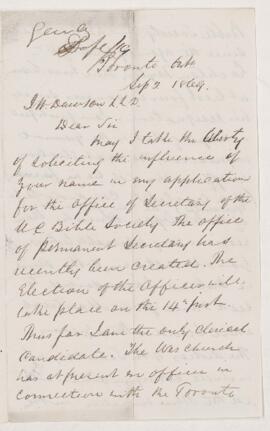 Toronto Ont
Sep 2 1869.
J W Dawson L L D.
Dear Sir
May I take the liberty
of soliciting the influence of
your name in my application
for the office of Secretary of the
U C Bible Society. The office
of permanent Secretary has
recently been created. The
Election of the Officer will
take place on the 14th inst.
Thus far I am the only clerical
Candidate. The Wes church
has at present an officer in
connection with the Toronto